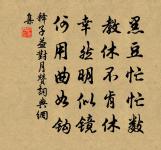 黑豆忙忙數
教休不肯休
幸然明似鏡
何用曲如鈎
釋子益對月贊詞典網
集